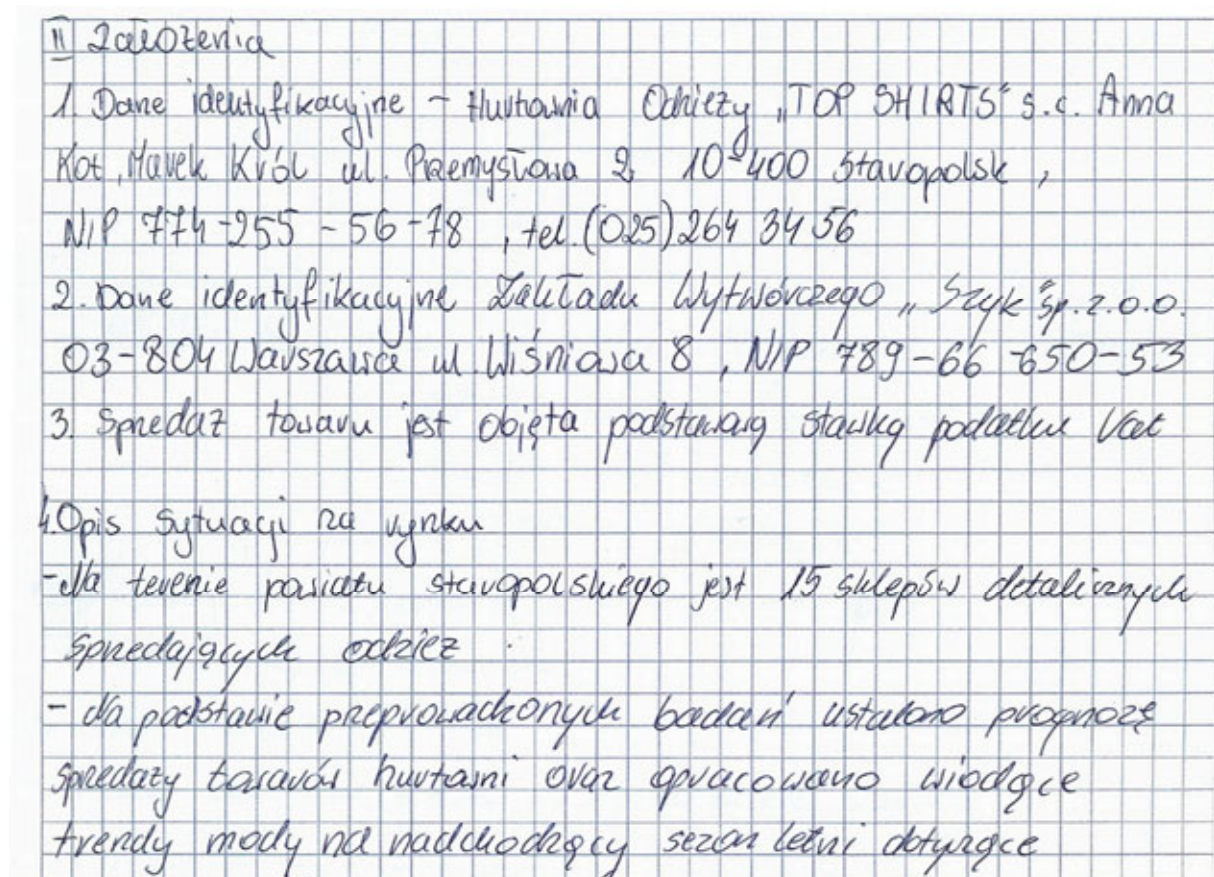 II Założenia
1. Dane identyfikacyjne - Hurtownia Odzieży „TOP SHIRTS" s.c. Anna
Kot, Marek Król ul. Przemysłowa 2 10-400 Staropolsk,
NIP 774-255-56-78, tel. (025) 264 34 56
2. Dane identyfikacyjne Zakładu Wytwórczego „Szyk" sp. z.o.o.
03-804 Warszawa ul. Wiśniowa 8, NIP 789-66-650-53
3. Sprzedaż towaru jest objęta podstawową stawką podatku Vat
4. Opis sytuacji na rynku
- Na terenie powiatu staropolskiego jest 15 sklepów detalicznych
sprzedających odzież.
- Na podstawie przeprowadzonych badań ustalono prognozę
sprzedaży towarów hurtowni oraz opracowano wiodące
trendy mody na nadchodzący sezon letni dotyczące